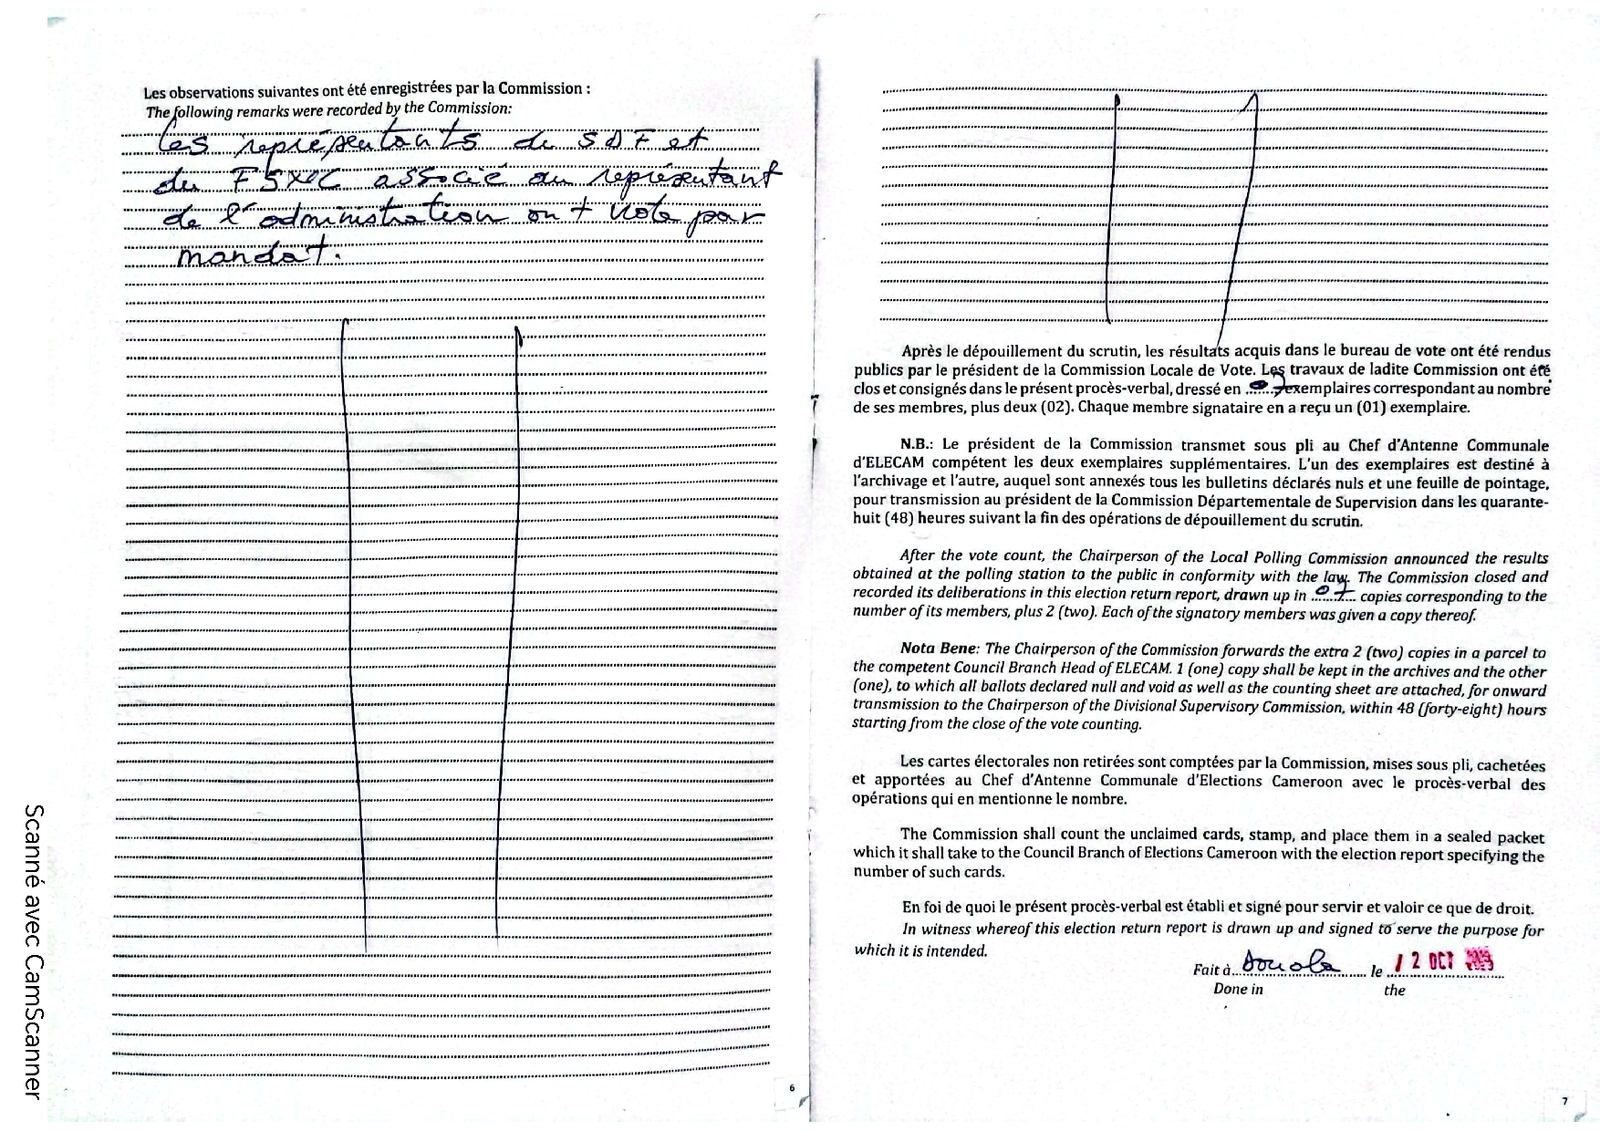 Les observations suivantes ont été enregistrées par la Commission :
The following remarks were recorded by the Commission:
Les représentants du SDF et
du associé au représentant
de l'administration ont voté par
mandat.
6
Après le dépouillement du scrutin, les résultats acquis dans le bureau de vote ont été rendus
publics par le président de la Commission Locale de Vote. Les travaux de ladite Commission ont été
clos et consignés dans le présent procès-verbal, dressé en 07 exemplaires correspondant au nombre
de ses membres, plus deux (02). Chaque membre signataire en a reçu un (01) exemplaire.
N.B.: Le président de la Commission transmet sous pli au Chef d'Antenne Communale
d'ELECAM compétent les deux exemplaires supplémentaires. L'un des exemplaires est destiné à
l'archivage et l'autre, auquel sont annexés tous les bulletins déclarés nuls et une feuille de pointage,
pour transmission au président de la Commission Départementale de Supervision dans les quarante-
huit (48) heures suivant la fin des opérations de dépouillement du scrutin.
After the vote count, the Chairperson of the Local Polling Commission announced the results
obtained at the polling station to the public in conformity with the law. The Commission closed and
recorded its deliberations in this election return report, drawn up in 07 copies corresponding to the
number of its members, plus 2 (two). Each of the signatory members was given a copy thereof.
Nota Bene: The Chairperson of the Commission forwards the extra 2 (two) copies in a parcel to
the competent Council Branch Head of ELECAM. 1 (one) copy shall be kept in the archives and the other
(one), to which all ballots declared null and void as well as the counting sheet are attached, for onward
transmission to the Chairperson of the Divisional Supervisory Commission, within 48 (forty-eight) hours
starting from the close of the vote counting.
Les cartes électorales non retirées sont comptées par la Commission, mises sous pli, cachetées
et apportées au Chef d'Antenne Communale d'Elections Cameroon avec le procès-verbal des
opérations qui en mentionne le nombre.
The Commission shall count the unclaimed cards, stamp, and place them in a sealed packet
which it shall take to the Council Branch of Elections Cameroon with the election report specifying the
number of such cards.
En foi de quoi le présent procès-verbal est établi et signé pour servir et valoir ce que de droit.
In witness whereof this election return report is drawn up and signed to serve the purpose for
which it is intended.
Fait à Douala le 12 OCT
Done in the
7
Scanné avec CamScanner